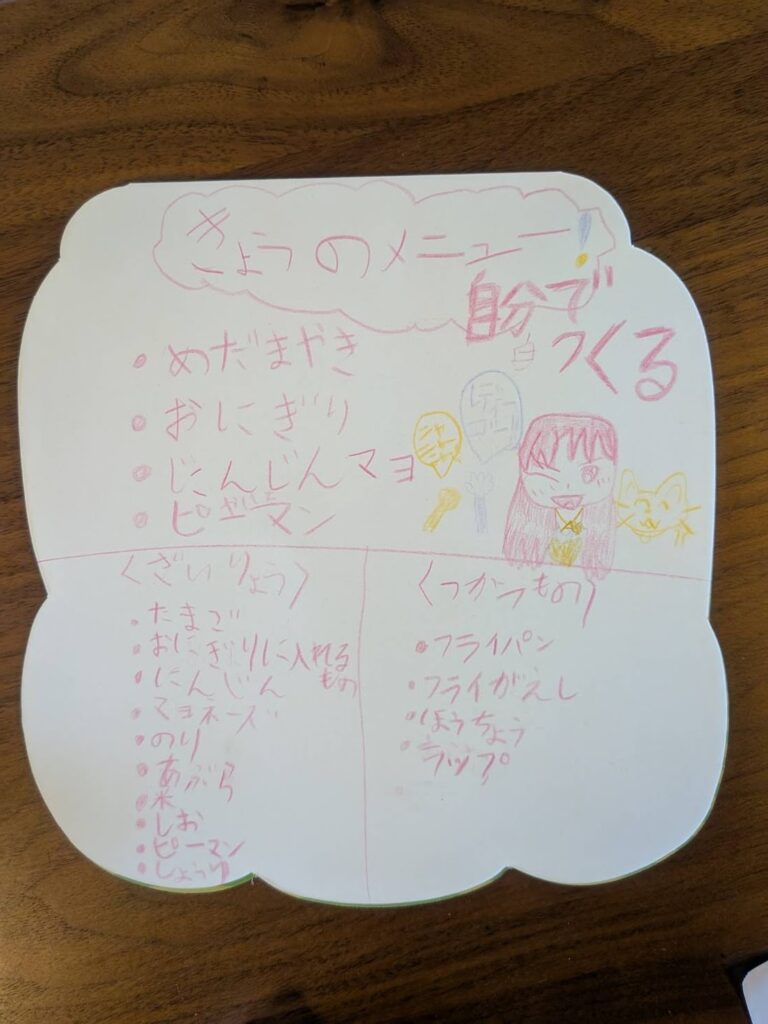 きょうのメニュー!
自分で
つくる
・めだまやき
・おにぎり
・にんじんマヨ
・ピーマン
〈ざいりょう〉
・たまご
・おにぎりに入れる
もの
・にんじん
・マヨネーズ
・のり
・あぶら
・米
・しお
・ピーマン
・しょうり
〈つかうもの〉
・フライパン
・フライがえし
・ほうちょう
・ラップ